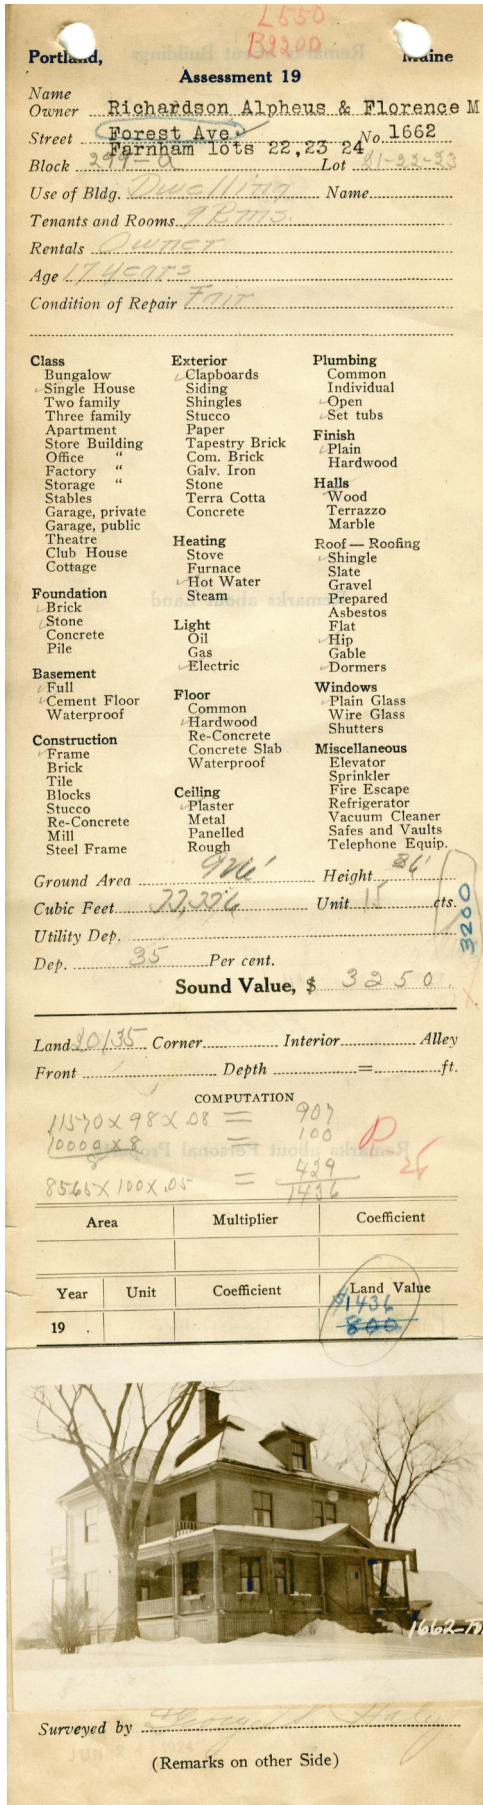 L550
B2200
Portland, Maine
Assessment 19
Name
Owner Richardson Alpheus & Florence M
Street Forest Ave. No. 1662
Farnham lots 22,23 24
Block 299-A Lot 21-22-23
Use of Bldg. Dwelling Name
Tenants and Rooms 9 Rms.
Rentals Owner
Age 17 years
Condition of Repair Fair
Class
Bungalow
Single House
Two family
Three family
Apartment
Store Building
Office "
Factory "
Storage "
Stables
Garage, private
Garage, public
Theatre
Club House
Cottage
Foundation
Brick
Stone
Concrete
Pile
Basement
Full
Cement Floor
Waterproof
Construction
Frame
Brick
Tile
Blocks
Stucco
Re-Concrete
Mill
Steel Frame
Exterior
Clapboards
Siding
Shingles
Stucco
Paper
Tapestry Brick
Com. Brick
Galv. Iron
Stone
Terra Cotta
Concrete
Heating
Stove
Furnace
Hot Water
Steam
Light
Oil
Gas
Electric
Floor
Common
Hardwood
Re-Concrete
Concrete Slab
Waterproof
Ceiling
Plaster
Metal
Panelled
Rough
Plumbing
Common
Individual
Open
Set tubs
Finish
Plain
Hardwood
Halls
Wood
Terrazzo
Marble
Roof — Roofing
Shingle
Slate
Gravel
Prepared
Asbestos
Flat
Hip
Gable
Dormers
Windows
Plain Glass
Wire Glass
Shutters
Miscellaneous
Elevator
Sprinkler
Fire Escape
Refrigerator
Vacuum Cleaner
Safes and Vaults
Telephone Equip.
Ground Area 926' Height 36'
Cubic Feet 33,336 Unit 15 cts.
3200
Utility Dep.
Dep. 35 Per cent.
Sound Value, $ 3250
Land 20135 Corner Interior Alley
Front Depth = ft.
COMPUTATION
11570 x 98 x .08 = 907
10000 x 8 = 100
8565 x 100 x .05 = 429
1436
Area Multiplier Coefficient
Year Unit Coefficient Land Value
19 . $1436
800
1662-Fo
Surveyed by
(Remarks on other Side)